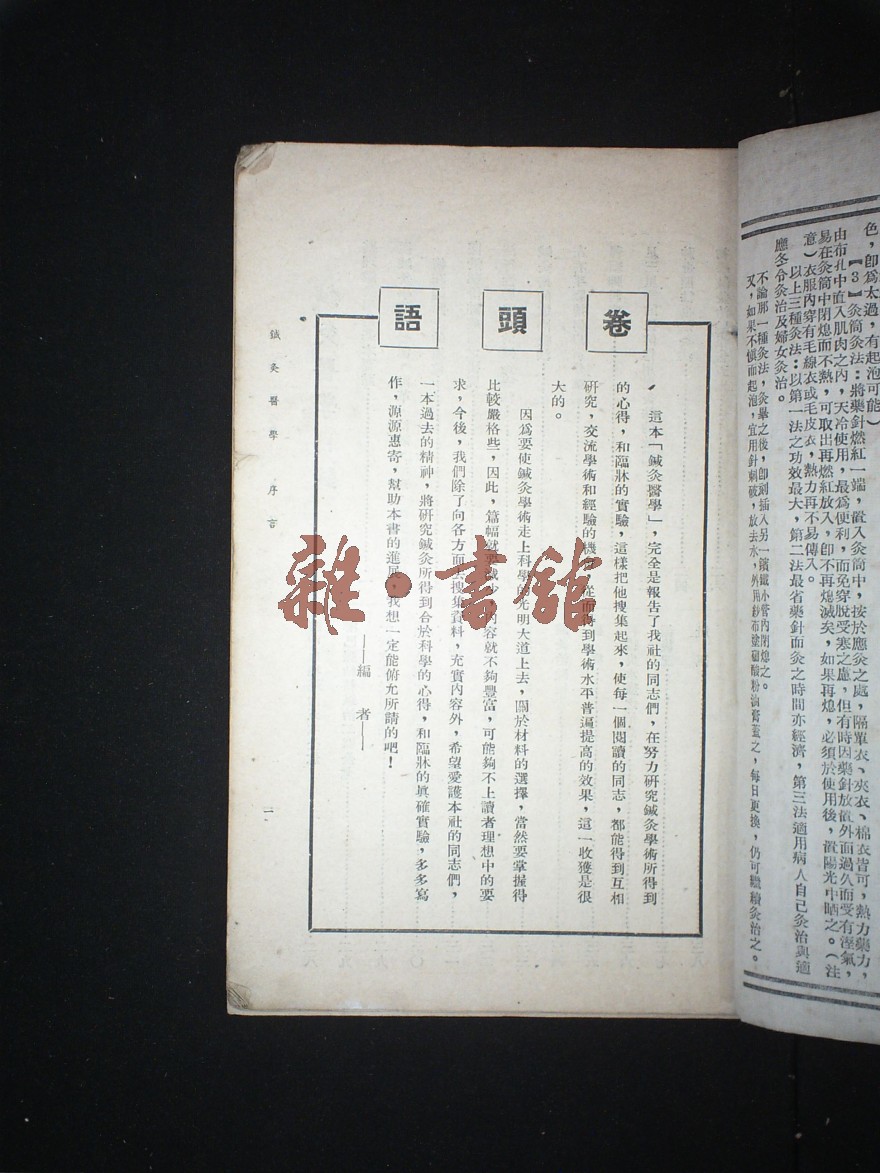 色，卽爲太過，有起泡可能）
【3】灸筒灸法：將藥針燃紅一端，置入灸筒中，按於應灸之處，隔單衣、夾衣、棉衣皆可，熱力藥力，
由布孔中直入肌肉之內，天冷使用，最爲便利，而免穿脫受寒之慮，但有時因藥針放置外面過久而受有溼氣，
易在灸筒中閉熄而不熱，可取出再燃紅放入，卽不再熄滅矣，如果再熄，必須於使用後，置陽光中晒之。（注
意）衣服內穿有毛線衣或毛皮衣，熱力再不易傳入。
以上三種灸法：以第一法之功效最大，第二法最省藥針而灸之時間亦經濟，第三法適用病人自己灸治與適
應冬令灸治及婦女灸治。
不論那一種灸法，灸畢之後，卽刻插入另一鐵小管內閉熄之。
又，如果不愼而起泡，宜用針刺破，放去水，外用紗布塗硼酸粉油膏蓋之，每日更換，仍可繼續灸治之。
卷頭語
這本「鍼灸醫學」，完全是報告了我社的同志們，在努力硏究鍼灸學術所得到
的心得，和臨牀的實驗，這樣把他搜集起來，使每一個閱讀的同志，都能得到互相
硏究，交流學術和經驗的機會，從而得到學術水平普遍提高的效果，這一收獲是很
大的。
因爲要使鍼灸學術走上科學的光明大道上去，關於材料的選擇，當然要掌握得
比較嚴格些，因此，篇幅就要減少，內容就不夠豐富，可能夠不上讀者理想中的要
求，今後，我們除了向各方面去搜集資料，充實內容外，希望愛護本社的同志們，
一本過去的精神，將硏究鍼灸所得到合於科學的心得，和臨牀的眞確實驗，多多寫
作，源源惠寄，幫助本書的進展，我想一定能俯允所請的吧！
——編者——
鍼灸醫學 序言
一
雜·書館